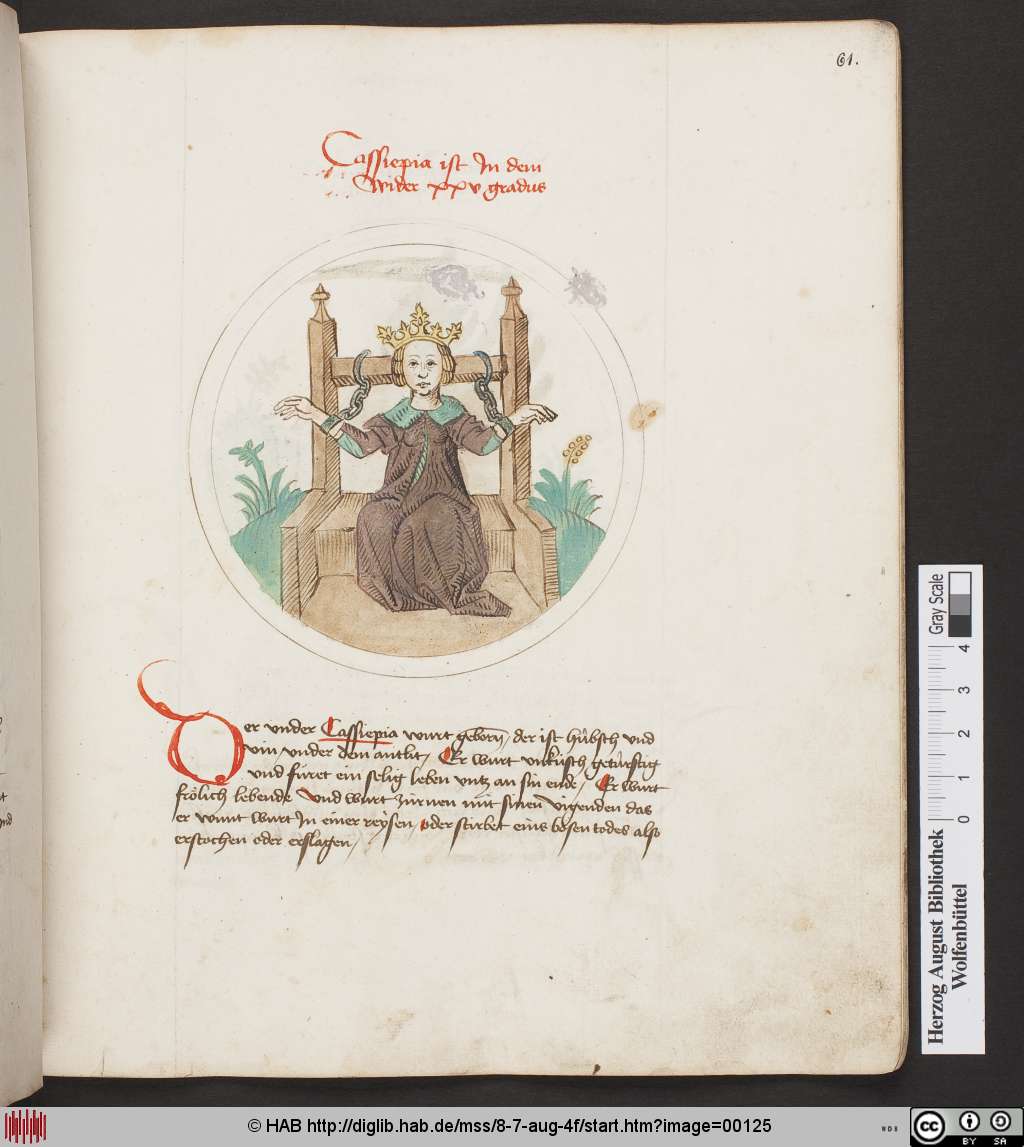 61.
Cassiepia ist In dem
Wider xxv gradus
Der vnder Cassiepia wirt geborn, der ist hübsch vnd
vin, vnder dem antlit, Er wurt vnküsch getürstig
vnd füret ein selig leben vntz an sin ende, Er wurt
frölich lebende Vnd wurt zürnen mit sinen vigenden das
er wunt wurt In einer reysen, oder stirbet eins bösen todes also
erstochen oder erslagen,
Gray Scale
0 1 2 3 4
Herzog August Bibliothek
Wolfenbüttel
© HAB http://diglib.hab.de/mss/8-7-aug-4f/start.htm?image=00125
WDB
cc BY SA